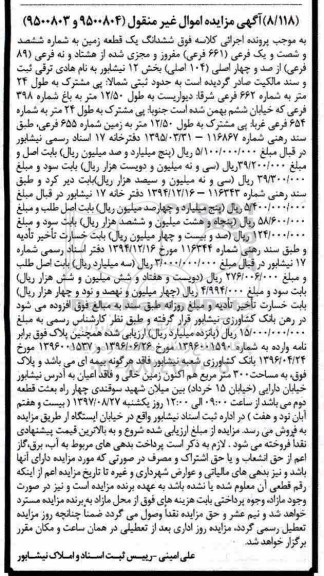 (۸/۱۱۸) آگهی مزایده اموال غیر منقول (۹۵۰۰۸۰۴ و ۹۵۰۰۸۰۳)
به موجب پرونده اجرائی کلاسه فوق ششدانگ یک قطعه زمین به شماره ششصد
و شصت و یک فرعی (۶۶۱ فرعی) مفروز و مجزی شده از هشتاد و نه فرعی (۸۹
فرعی) از صد و چهار اصلی (۱۰۴ اصلی) بخش ۱۲ نیشابور به نام هادی ترقی ثبت
و سند مالکیت صادر گردیده است به حدود ثبتی شمالا: پی مشترک به طول ۲۴
متر به شماره ۶۶۲ فرعی شرقا: دیواریست به طول ۱۲/۵۰ متر به باغ شماره ۳۹۸
فرعی که خیابان ششم بهمن شده است جنوبا: پی مشترک به طول ۲۴ متر به شماره
۶۵۴ فرعی غربا: پی مشترک به طول ۱۲/۵۰ متر به زمین شماره ۶۵۵ فرعی، طبق
سند رهنی شماره ۱۱۶۸۶۷ – ۱۳۹۵/۰۳/۳۱ دفترخانه ۱۷ اسناد رسمی نیشابور
در قبال مبلغ ۵/۱۰۰/۰۰۰/۰۰۰ ریال (پنج میلیارد و صد میلیون ریال) بابت اصل و
مبلغ ۳۹/۲۰۰/۰۰۰ ریال (سی و نه میلیون و دویست هزار ریال) بابت سود و مبلغ
۳۹/۳۰۰/۰۰۰ ریال (سی و نه میلیون و سیصد هزار ریال) بابت دیر کرد و طبق
سند رهنی شماره ۱۱۶۳۴۳ – ۱۳۹۴/۱۲/۱۶ دفتر خانه ۱۷ نیشابور در قبال مبلغ
۵/۴۰۰/۰۰۰/۰۰۰ ریال (پنج میلیارد و چهارصد میلیون ریال) بابت اصل طلب و مبلغ
۵۸/۶۰۰/۰۰۰ ریال (پنجاه و هشت میلیون و ششصد هزار ریال) بابت سود و مبلغ
۱۲۴/۰۰۰/۰۰۰ ریال (صد و بیست و چهار میلیون ریال) بابت خسارت تأخیر تأدیه
و طبق سند رهنی شماره ۱۱۶۳۴۴ مورخ ۱۳۹۴/۱۲/۱۶ دفتر اسناد رسمی شماره
۱۷ نیشابور در قبال مبلغ ۳/۰۰۰/۰۰۰/۰۰۰ ریال (سه میلیارد ریال) بابت اصل طلب
و مبلغ ۲۷۶/۰۰۶/۰۰۰ ریال (دویست و هفتاد و شش میلیون و شش هزار ریال)
بابت سود و مبلغ ۴/۹۹۴/۰۰۰ ریال (چهار میلیون و نهصد و نود و چهار هزار ریال)
بابت خسارت تأخیر تأدیه و مبلغ روزانه طبق سند به مبالغ فوق افزوده می شود
در رهن بانک کشاورزی نیشابور قرار گرفته و طبق نظر کارشناس رسمی به مبلغ
۱۵/۰۰۰/۰۰۰/۰۰۰ ریال (پانزده میلیارد ریال) ارزیابی شده همچنین پلاک فوق برابر
نامه وارده به شماره ۱۳۹۶۰۰۱۵۹۰ مورخ ۱۳۹۶/۰۶/۳۶ و ۱۳۹۶۰۰۱۵۳۷ مورخ
۱۳۹۶/۰۴/۲۴ بانک کشاورزی شعبه نیشابور فاقد هرگونه بیمه ای می باشد و پلاک
فوق، به مساحت ۳۰۰ متر مربع هم اکنون زمین خالی و فاقد اعیان به آدرس نیشابور
خیابان دارایی (خیابان ۱۵ خرداد) بین میلان شهید سوقندی چهار راه بعثت قطعه
دوم می باشد از ساعت ۰۹:۰۰ الی ۱۲:۰۰ روز یکشنبه ۱۳۹۷/۰۸/۲۷ (بیست و هفتم
آبان نود و هفت) در اداره ثبت اسناد نیشابور واقع در خیابان ایستگاه از طریق مزایده
به فروش می رسد. مزایده از مبلغ ارزیابی شده شروع و به بالاترین قیمت پیشنهادی
نقداً فروخته می شود. لازم به ذکر است پرداخت بدهی های مربوط به آب، برق، گاز
اعم از حق انشعاب و یا حق اشتراک و مصرف در صورتی که مورد مزایده دارای آنها
باشد و نیز بدهی های مالیاتی و عوارض شهرداری و غیره تا تاریخ مزایده اعم از اینکه
رقم قطعی آن معلوم شده یا نشده باشد به عهده برنده مزایده است و نیز در صورت
وجود مازاد، وجوه پرداختی بابت هزینه های فوق از محل مازاد به برنده مزایده مسترد
خواهد شد و نیم عشر و حق مزایده نقداً وصول می گردد ضمنا چنانچه روز مزایده
تعطیل رسمی گردد، مزایده روز اداری بعد از تعطیلی در همان ساعت و مکان مقرر
برگزار خواهد شد.
علی امینی – رییس ثبت اسناد و املاک نیشابور